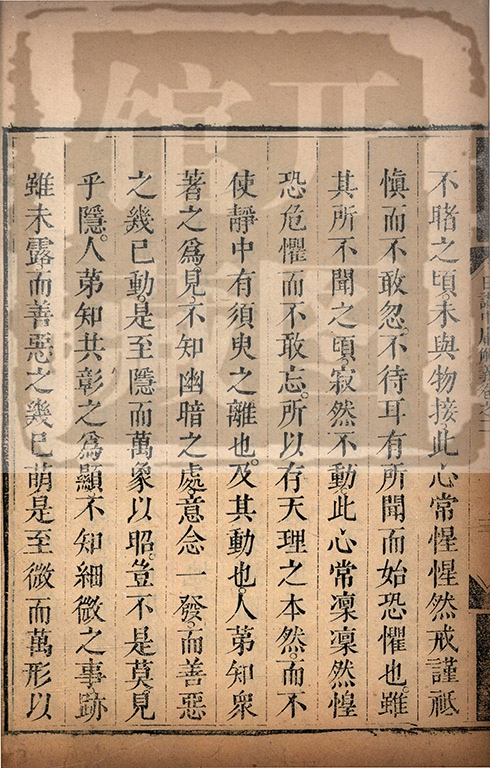 不睹之頃。未與物接。此心常惺惺然戒謹祗
愼而不敢忽。不待耳有所聞而始恐懼也。雖
其所不聞之頃。寂然不動此心常凜凜然惶
恐危懼而不敢忘。所以存天理之本然。而不
使靜中有須臾之離也。及其動也。人苐知衆
著之爲見。不知幽暗之處。意念一發。而善惡
之幾已動。是至隱而萬象以昭。豈不是莫見
乎隱。人苐知共彰之爲顯。不知細微之事。跡
雖未露。而善惡之幾已萌是至微而萬形以